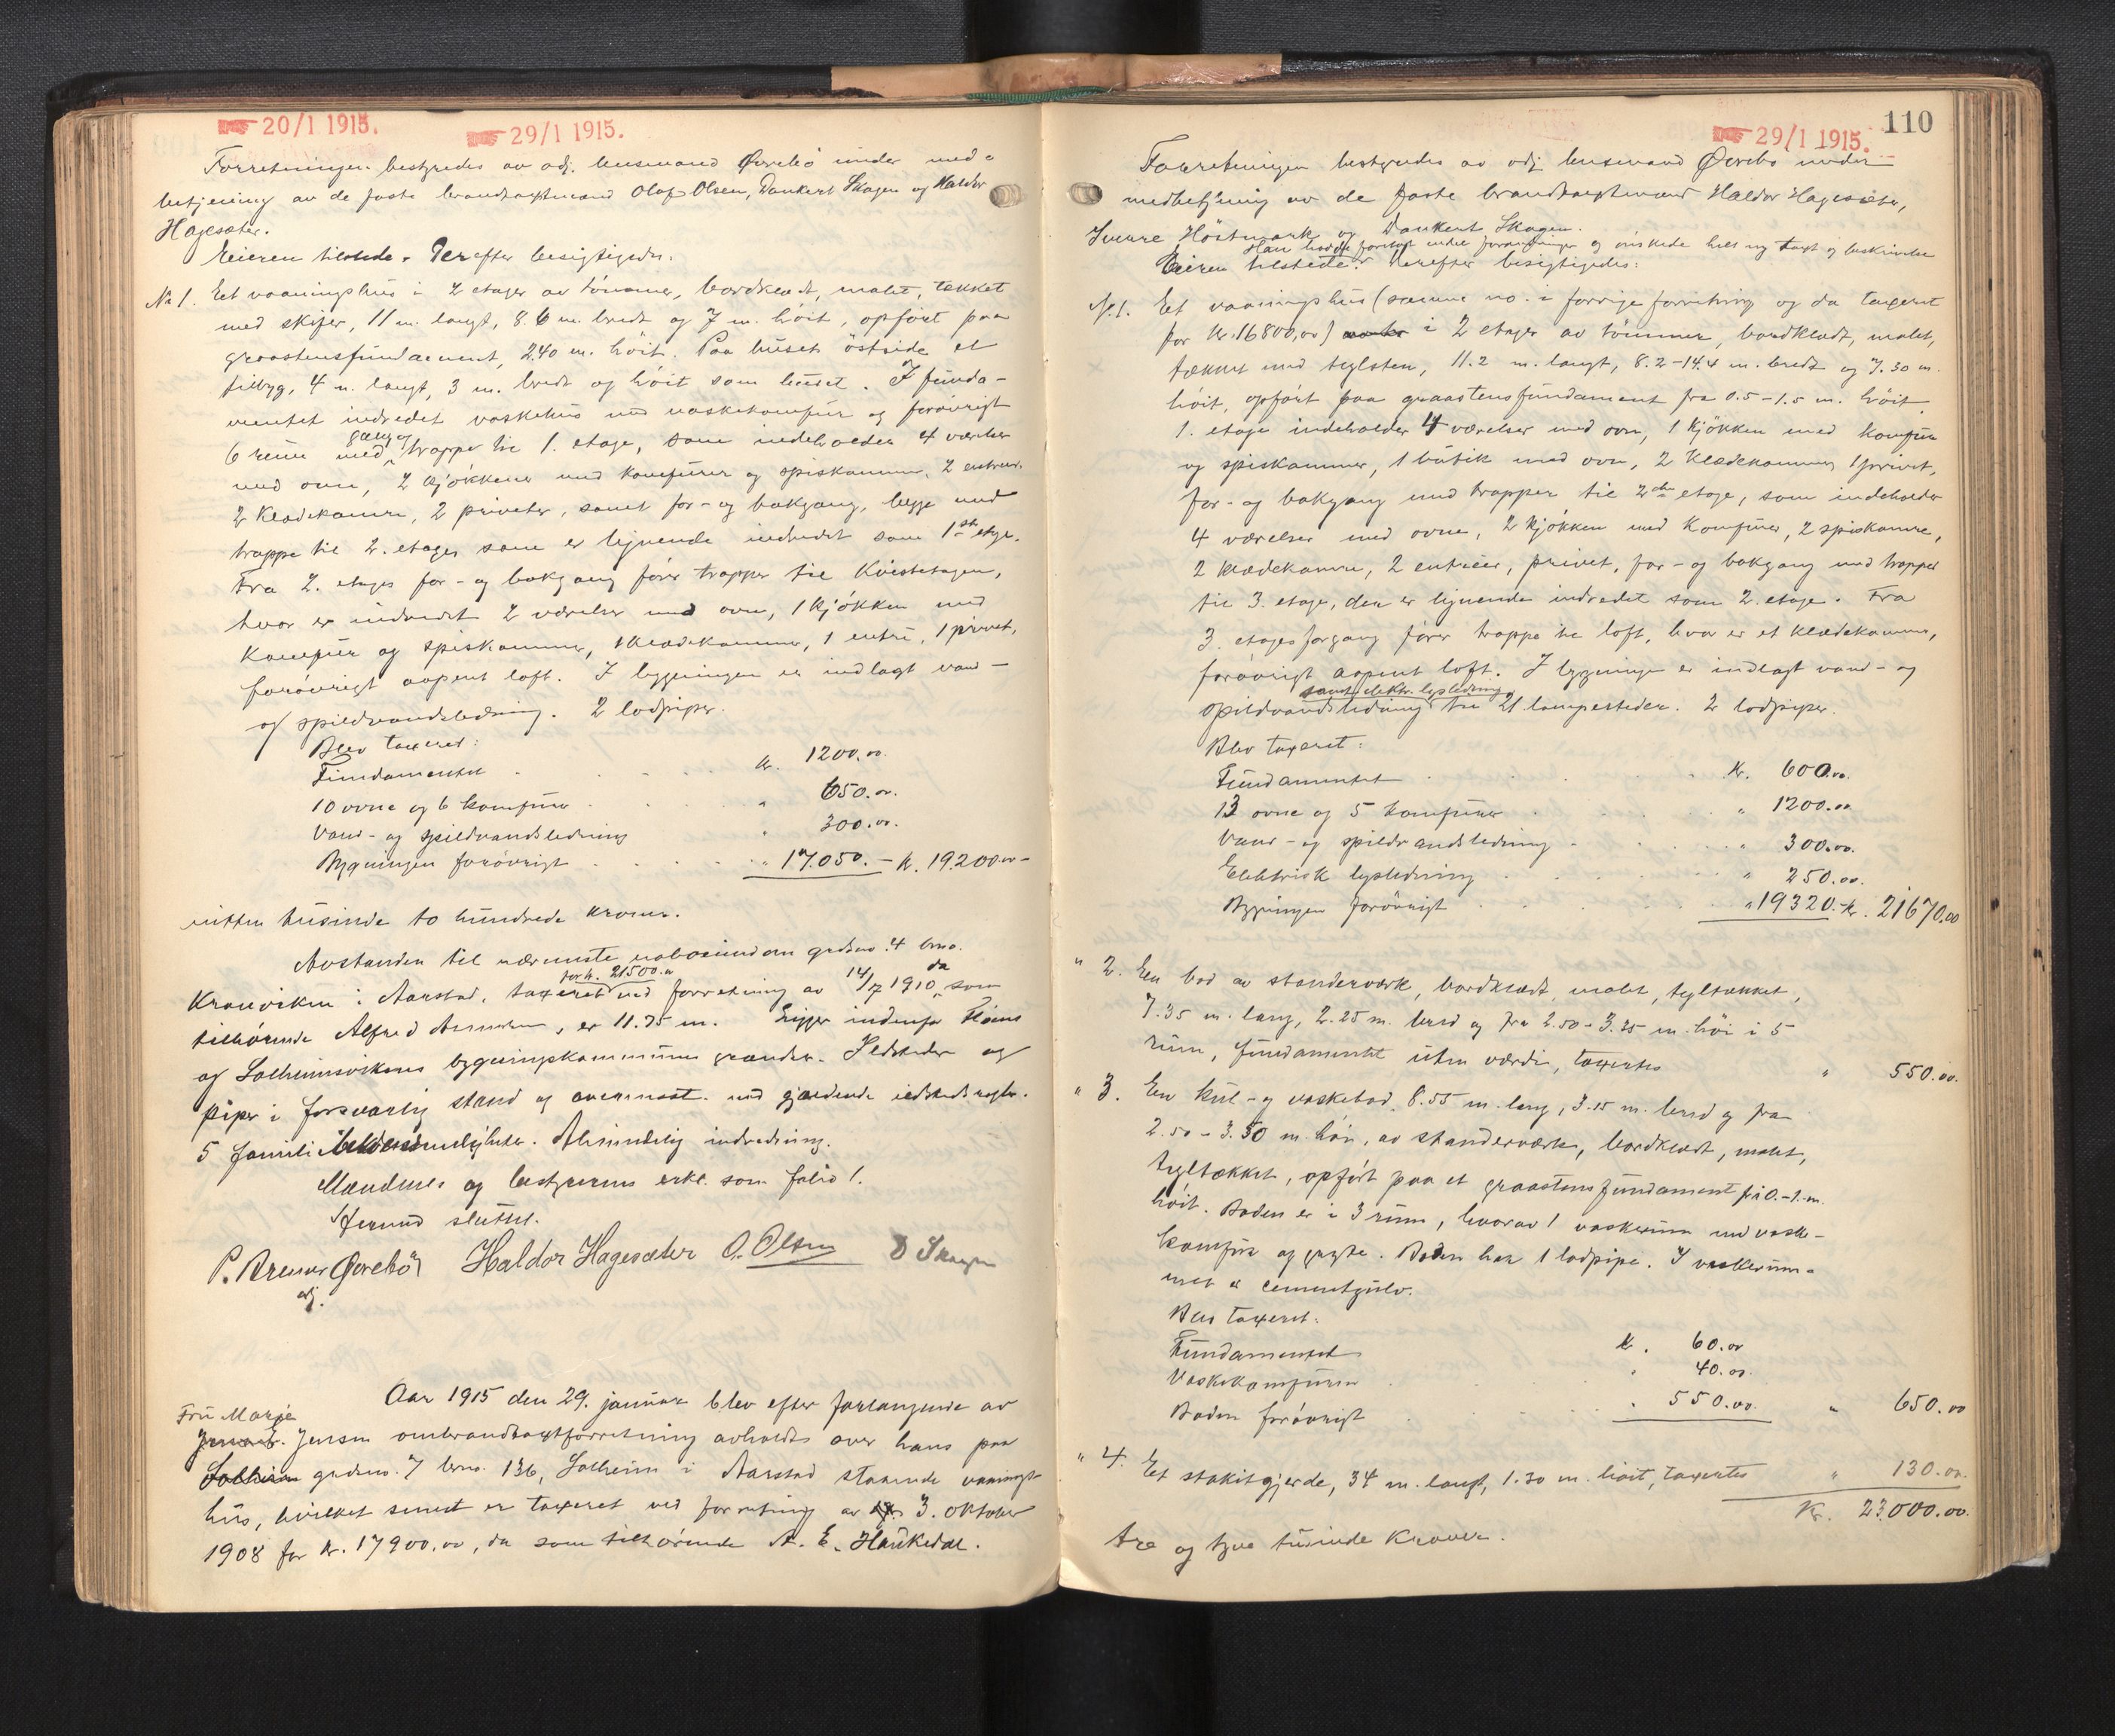 20/1 1915.
29/1 1915.
Forretningen bestyredes av adj. lensmand Øvrebö under med-
betjening av de faste brandtaxtmænd Olaf Olsen, Dankert Skagen og Haldor
Hagesæter.
Eieren tilstede. Derefter besigtigedes.
No 1. Et vaaningshus i 2 etager av tömmer, bordklædt, malet, tækket
med skifer, 11 m. langt, 8.6 m. bredt og 7 m. höit, opfört paa
graastensfundament, 2.40 m. höit. Paa husets östside et
tilbyg, 4 m. langt, 3 m. bredt og höit som huset. I funda-
mentet indredet vaskehus med vaskekomfur og forövrigt
6 rum med gang og trappe til 1. etage, som indeholder 4 værelser
med ovn, 2 kjökkener med komfurer og spiskammer, 2 entreer.
2 klædekamre, 2 priveter, samt for- og bakgang, begge med
trappe til 2. etage som er lignende indredet som 1ste etage.
Fra 2. etages for- og bakgang förer trapper til Kvistetagen,
hvor er indredet 2 værelser med ovn, 1 kjökken med
komfur og spiskammer, 1 klædekammer, 1 entré, 1 privet,
forövrigt aapent loft. I bygningen er indlagt vand-
og spildvandsledning. 2 lodpiper.
Blev taxeret:
Fundamentet kr. 1200.00.
10 ovne og 6 komfurer " 650.00.
Vand- og spildvandsledning " 300.00.
Bygningen forövrigt " 17.050.- kr. 19.200.00-
nitten tusinde to hundrede kroner.
Avstanden til nærmeste nabo eiendom grdsno. 4 brno.
Kronviken i Aarstad, taxeret for kr. 21500.00 ved forretning av 14/7 1910, da som
tilhörende Alfred , er 11.75 m. Ligger indenfor
og Solheimsvikens bygningskommunes grænder. Ildsteder og
piper i forsvarlig stand og overensst. med gjældende ildstedsregler.
5 familiebekvemmeligheter. Almindelig indredning.
Mændenes og bestyrerens erkl. som folio 1.
Hermed sluttet.
P. Øvrebö Haldor Hagesæter O. Olsen D Skagen
adj.
Aar 1915 den 29. januar blev efter forlangende av
Fru Marie
Jensen ombrandtaxtforretning avholdt over hans paa
Solheim grdsno. 7 brno. 136, Solheim i Aarstad staaende vaanings-
hus, hvilket senest er taxeret ved forretning av 3. oktober
1908 for kr. 17900.00, da som tilhörende A. E. Haukedal.
29/1 1915.
110
Forretningen bestyredes av adj. lensmand Øvrebö under
medbetjening av de faste brandtaxtmænd Haldor Hagesæter,
Sverre Höstmark og Dankert Skagen.
Han hadde foretat endel forandringer og önskede hel ny taxt og beskrivelse
Eieren tilstede. Derefter besigtigedes:
No. 1. Et vaaningshus (samme no. i forrige forretning og da taxeret
for kr. 16800,00) i 2 etager av tömmer, bordklædt, malet,
tækket med teglsten, 11.2 m. langt, 8.2-14.4 m. bredt og 7.30 m.
höit, opfört paa graastensfundament fra 0.5-1.5 m. höit
1. etage indeholder 4 værelser med ovn, 1 kjökken med komfur
og spiskammer, 1 butik med ovn, 2 klædekammer, 1 privet,
for- og bakgang med trapper til 2den etage, som indeholder
4 værelser med ovne, 2 kjökken med komfurer, 2 spiskamre,
2 klædekamre, 2 entréer, privet, for- og bakgang med trapper
til 3. etage, der er lignende indredet som 2. etage. Fra
3. etages forgang förer trappe til loft, hvor er et klædekammer,
forövrigt aapent loft. I bygningen er indlagt vand- og
spildvandsledning samt elektr. lysledning til 21 lampesteder. 2 lodpiper.
Blev taxeret:
Fundamentet kr. 600.00.
13 ovne og 5 komfurer " 1200.00
Vand- og spildvandsledning " 300.00.
Elektrisk lysledning " 250.00.
Bygningen forövrigt " 19320.- kr. 21670.00
" 2. En bod av standerværk, bordklædt, malet, tegltækket,
7.35 m. lang, 2.25 m. bred og fra 2.50-3.25 m. höi i 5
rum, fundamentet uten værdi, taxertes " 550.00.
" 3. En kul- og vaskebod, 8.55 m. lang, 3.15 m. bred og fra
2.50-3.50 m. höi, av standerværk, bordklædt, malet,
tegltækket, opfört paa et graastensfundament fri 0.-1. m.
höit. Boden er i 3 rum, hvorav 1 vaskerum med vaske-
komfur og gryte. Boden har 1 lodpipe. I vaskerum-
met er cementgulv.
Blev taxeret:
Fundamentet kr. 60.00
Vaskekomfuren " 40.00.
Boden forövrigt " 550.00. " 650.00
" 4. Et stakitgjerde, 34 m. langt, 1.30 m. höit, taxertes " 130.00.
Kr. 23.000.00.
tre og tyve tusinde kroner.